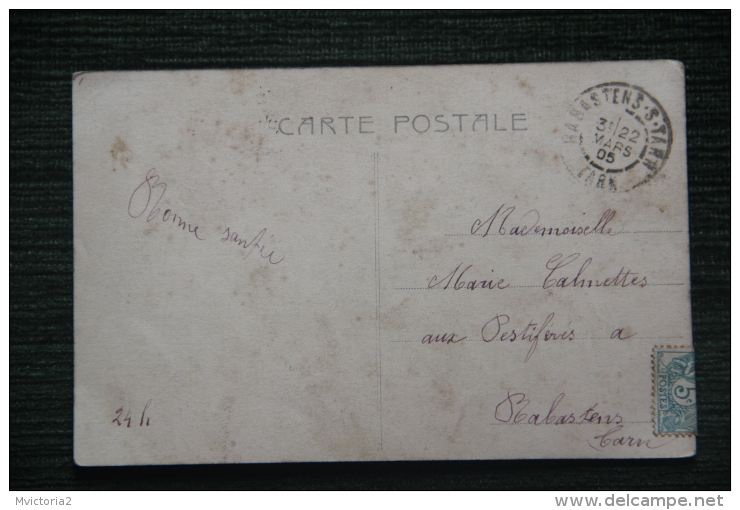 CARTE POSTALE
RABASTENS-S-TARN
3E/22
MARS
05
TARN
Bonne santée
Mademoiselle
Marie Calmettes
aux Pestiferes a
Rabastens
Tarn
24 h
POSTES
5c
Mvictoria2
delcampe.net